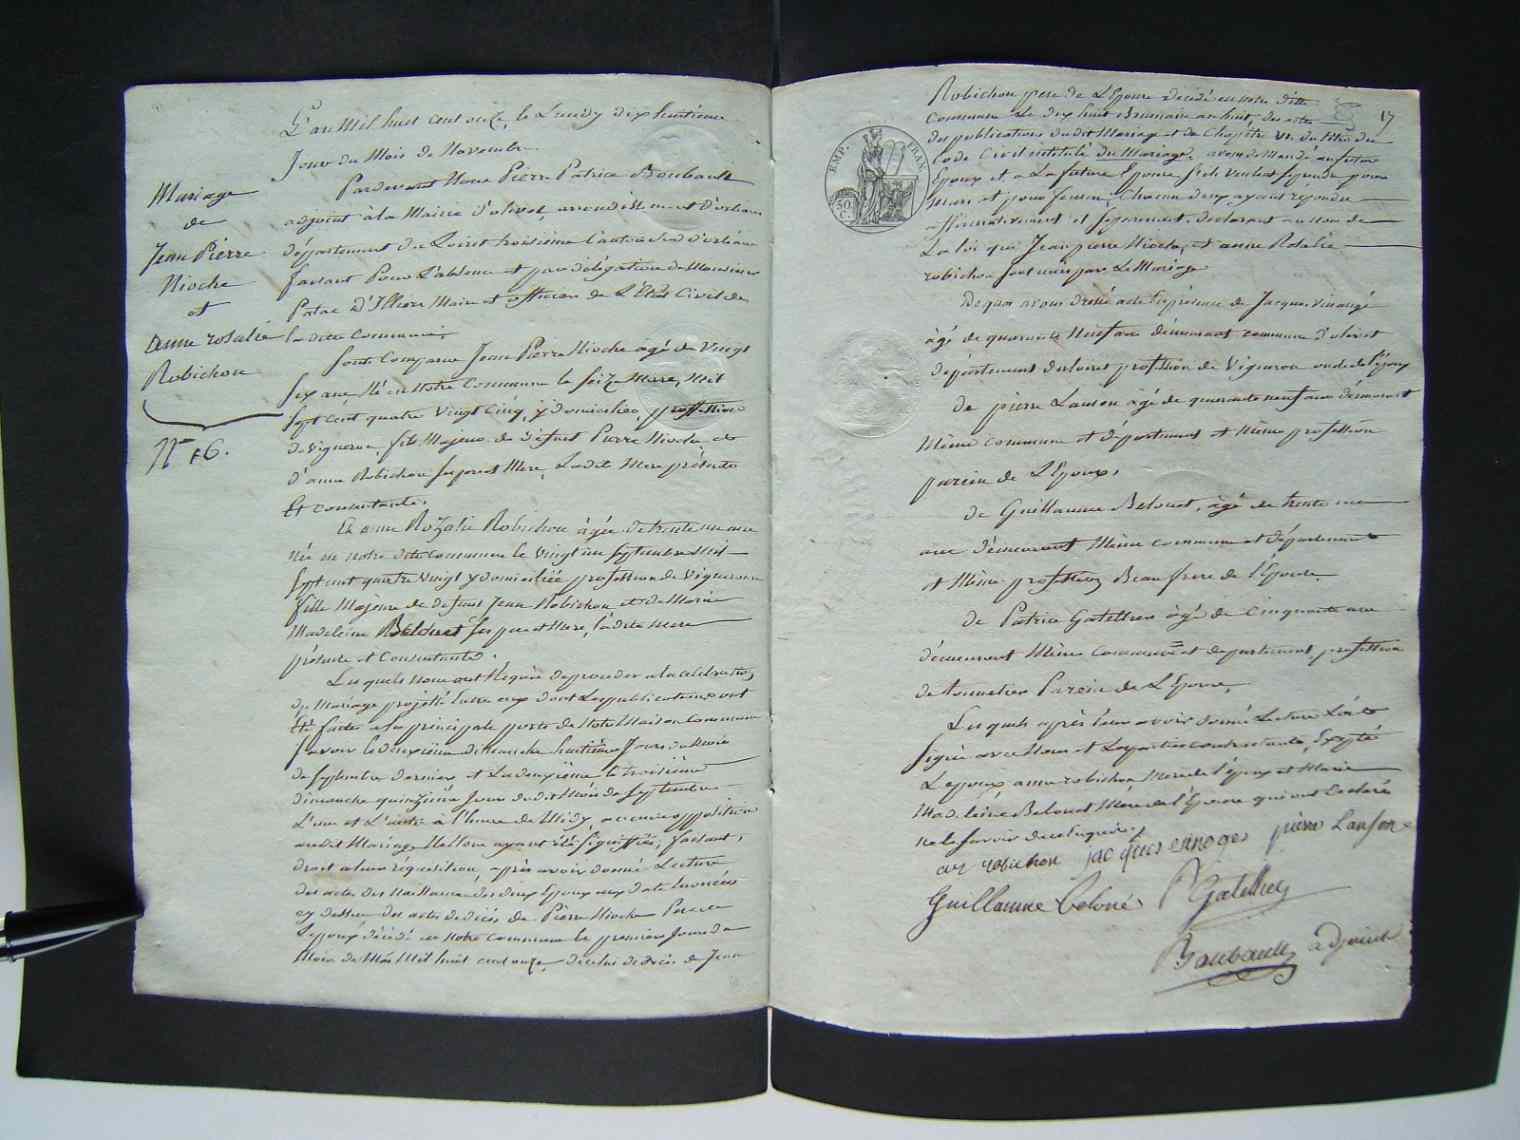 L'an Mil huit cent onze, le Lundy dix huitième
Jour du Mois de Novembre
Pardevant Nous Pierre Patrice Boubault
adjoint à la Mairie d'olivet, arrondissement d'orleans
département du Loiret troisième Canton d'orléans
faisant Pour L'absence et par délégation de Monsieur
Maire et officier de L'Etat Civil de
la ditte Commune
Mariage
de
Jean Pierre
Nioche
et
anne rosalie
Robichon
N° 16.
Sont Comparus Jean Pierre Nioche âgé de Vingt
six ans Né en Notre Commune le Seize Mars, Mil
Sept cent quatre Vingt Cinq, y Domicilié, proffession
de Vigneron, fils Majeur de défunt Pierre Nioche et
d'anne Robichon ses pere et Mere, Ladite Mere présente
Et consentante.
Et anne Rozalie Robichon âgée de trente un ans
Née en notre dite commune le vingt un Septembre Mil
Sept cent quatre vingt y domiciliée profession de Vigneronne
fille Majeure de defunt Jean Robichon et de Marie
Madeleine Belouet ses pere et Mere, la dite Mere
présente et Consentante.
Lesquels Nous ont Requis de proceder à la celebration
du Mariage projetté entre eux dont Les publications ont
été faites à la principale porte de Notre Maison Commune
Savoir le deuxième dimanche huitième Jour du Mois
de Septembre dernier et La deuxième le troisième
dimanche quinzième Jour dudit Mois de Septembre
L'une et L'autre à l'heure de Midy aucune opposition
audit Mariage Ne Nous ayant été Signiffiée, faisant,
droit à leur réquisition, après avoir donné Lecture
des actes de Naissance des deux Epoux aux dates enoncées
cy dessus des actes de décès de Pierre Nioche Pere de
L'epoux décédé en Notre commune le premier Jour du
Mois de Mai Mil huit cent onze, de celui de décès de Jean
EMP. FRAN.
50 C.
17
Robichon pere de L'Epouse décédé en notre ditte
Commune Le dix huit Brumaire an huit, des actes
des publications dudit Mariage et du Chapitre VI. du titre du
Code Civil intitulé du Mariage, avons demandé au futur
Epoux et à La future Epouse s'ils veulent se prendre pour
Mari et pour femme, Chacun d'eux ayant répondu
affirmativement et séparément, declarons au nom de
La loi que Jean pierre Nioche, et anne Rosalie
robichon sont unis par Le Mariage
De quoi avons dressé acte En présence de Jacques
âgé de quarante Neuf ans démeurant commune d'olivet
département du Loiret profession de Vigneron oncle de l'époux
de pierre Lanson âgé de quarante neuf ans démeurant
Même commune et département et Même profession
parein de L'Epoux,
de Guillaume Belouet, âgé de trente
ans démeurant Même commune et département
et Même profession Beaufrere de l'Epouse
de Patrice Gatellier âgé de Cinquante ans
démeurant Même Commune et departement, profession
de tonnelier Parein de L'Epouse,
Lesquels après leur avoir donné Lecture L'ont
Signé avec Nous et Les parties contractantes, Excepté
L'epoux anne robichon Mere de l'époux et Marie
Madeleine Belouet Mere de l'Epouse qui ont declarés
ne le Savoir de ce requis.
robichon jacques pierre Lanson
Guillaume beloué P Gatellier
Boubault adjoint